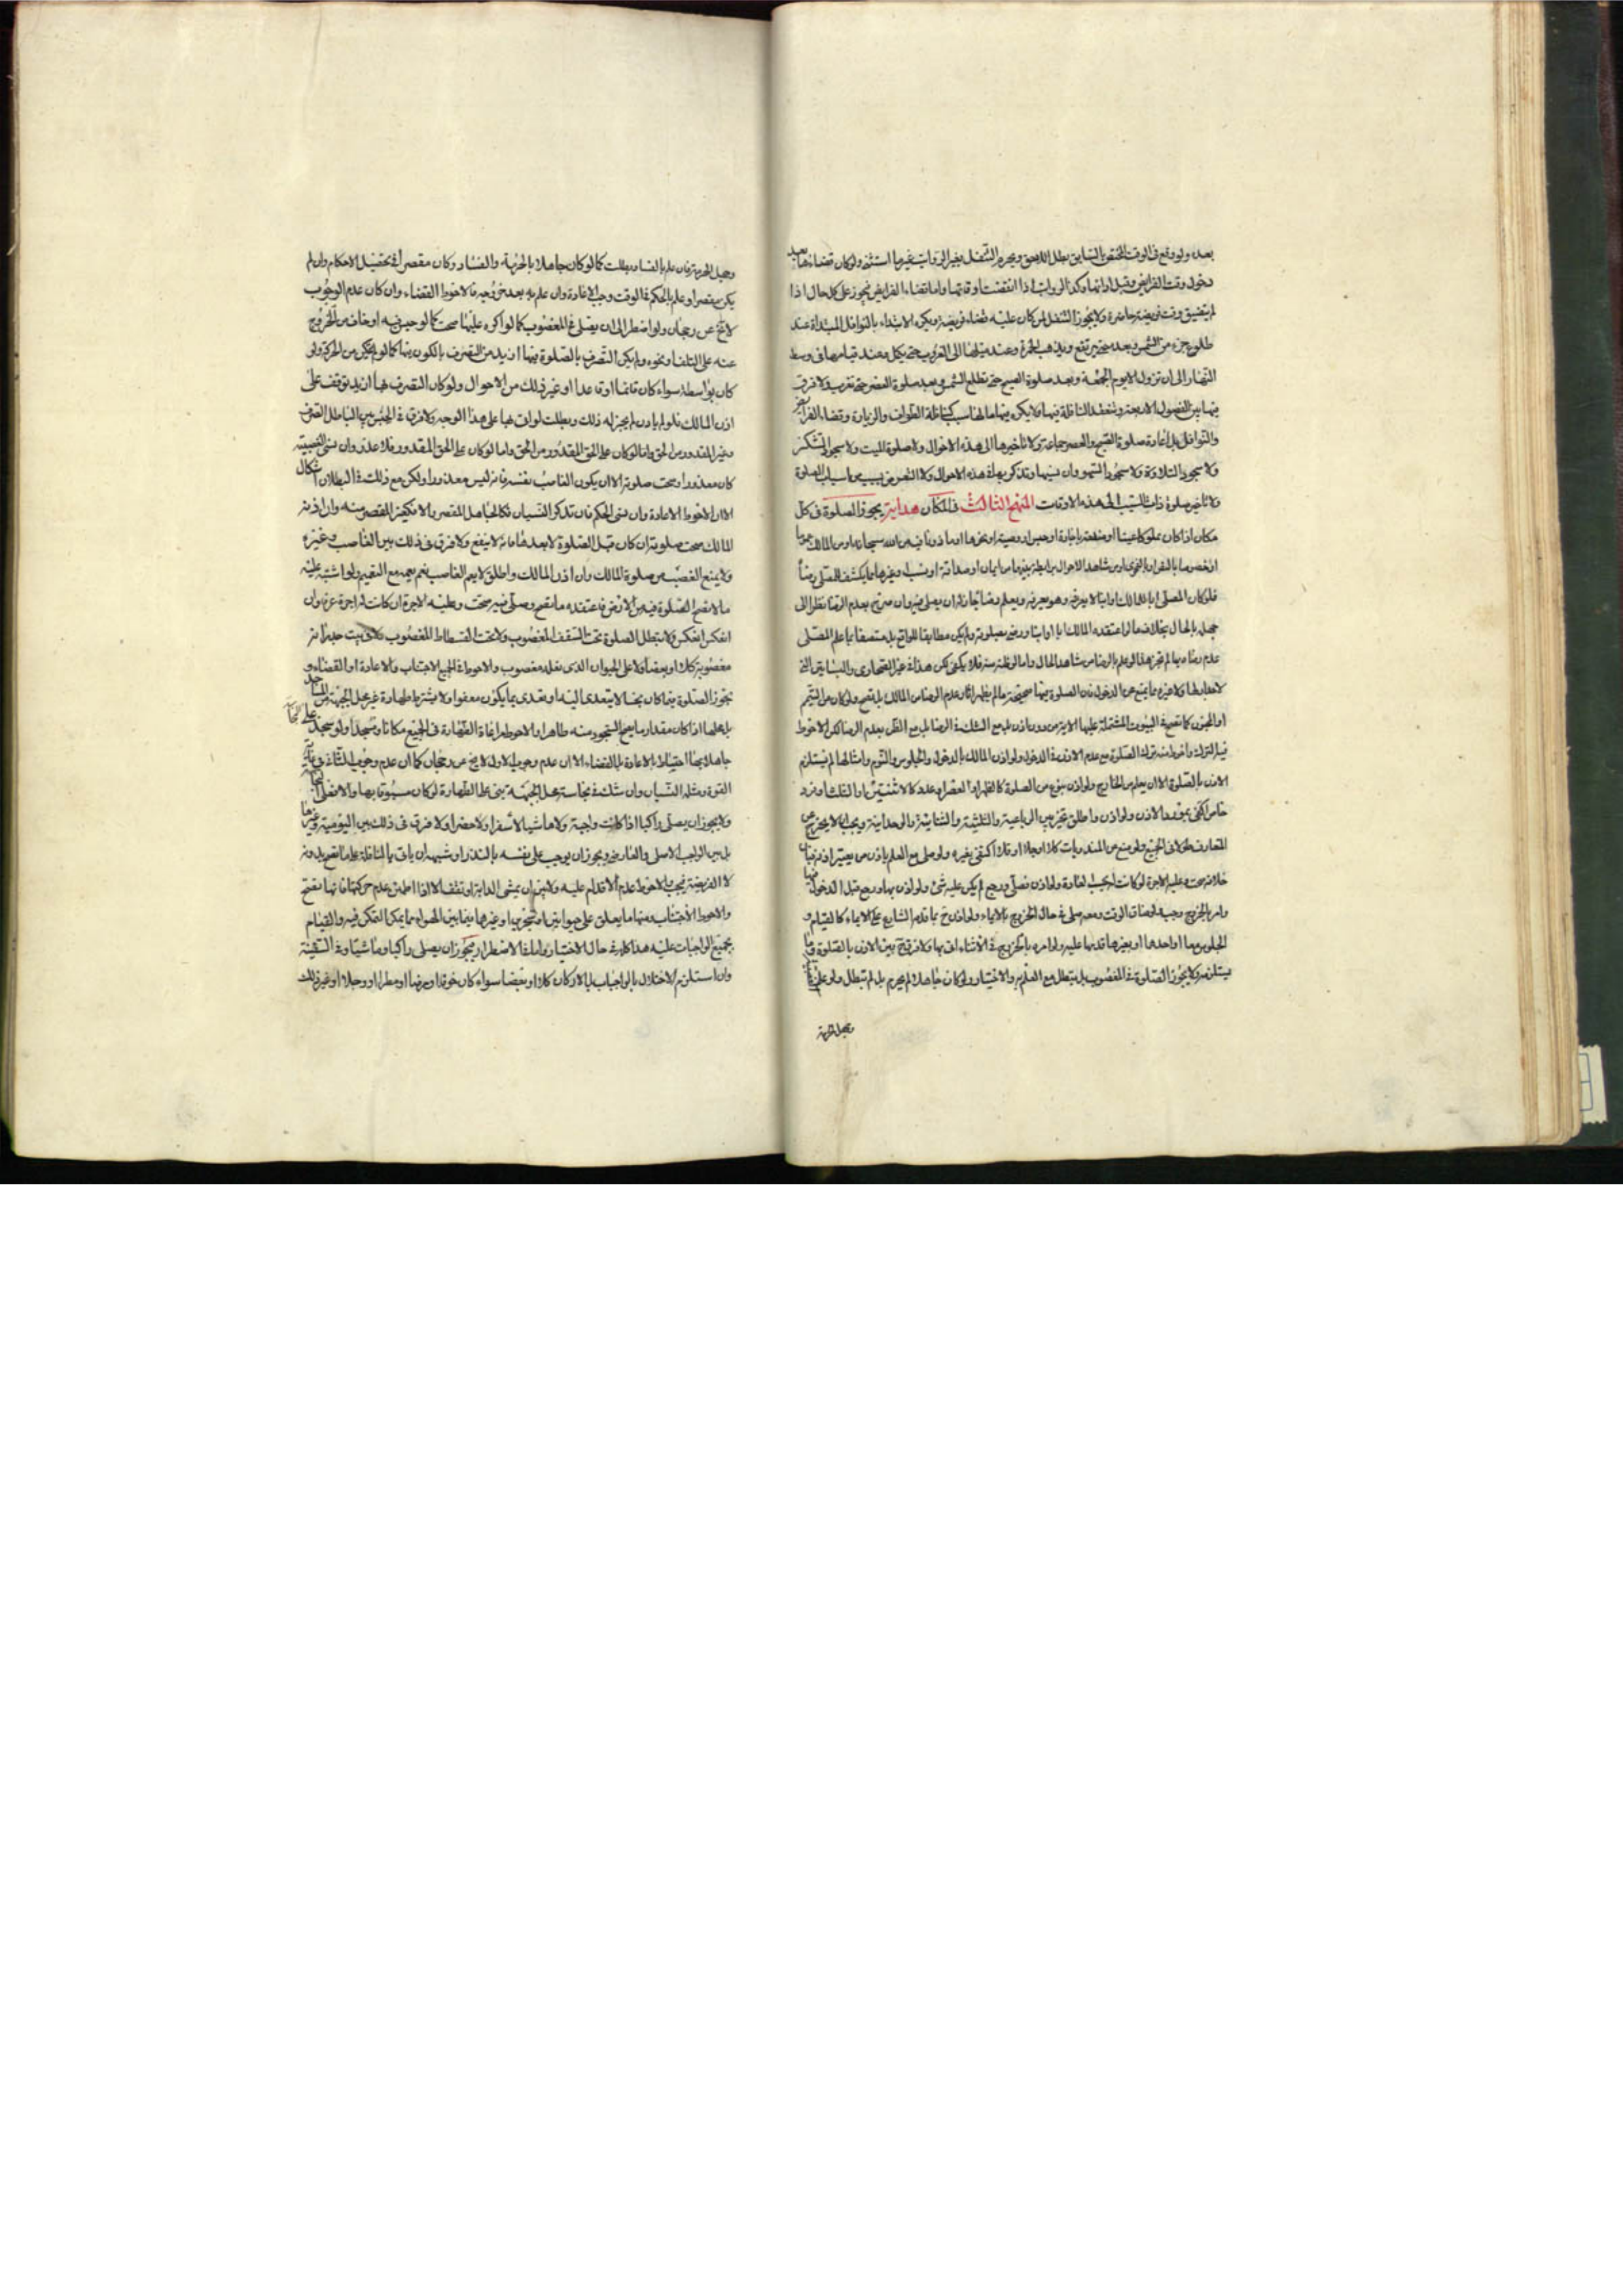 بعده ولو وقع فى الوقت المختص بالسابق بطل اللاحق ويحرم التنفل بغير الرواتب غير ما استثنى ولو كان قضاء بعد
دخول وقت الفرايض وقبل اوانها وكذا الرواتب اذا انقضت اوقاتها واما قضاء الفرايض فيجوز على كل حال اذا
لم يتضيق وقت فريضة حاضرة ولا يجوز التنفل لمن كان عليه قضاء فريضة ويكره الابتداء بالنوافل المبتداة عند
طلوع جزء من الشمس وبعده حتى ترتفع ويذهب الحمرة وعند ميلها الى الغروب حتى يكمل وعند قيامها فى وسط
النهار الى ان تزول الا يوم الجمعة وبعد صلوة الصبح حتى تطلع الشمس وبعد صلوة العصر حتى تغرب ولا فرق
بينها بين الفصول الاربعة وتنعقد النافلة فيها ولا يكره فيها ما لها سبب كنافلة الطواف والزيارة وقضاء الفرايض
والنوافل بل اعادة صلوة الصبح والعصر جماعة ولا تاخيرها الى هذه الاحوال ولا صلوة الميت ولا سجود الشكر
ولا سجود التلاوة ولا سجود السهو وان نسيها وتذكر بها فى هذه الاحوال ولا التعرض لسبب من اسباب الصلوة
ولا تاخير صلوة ذات السبب الى هذه الاوقات المنهج الثالث فى المكان هداية يجوز الصلوة فى كل
مكان اذا كان مملوكا عينا او منفعة باجارة او حبس او وصية او نحوها او ماذونا فيه من الله سبحانه او من المالك عموما
او خصوصا بالصراحة او الفحوى او من شاهد الاحوال من رابطة بينهما من ايمان او صداقة او نسب او غيرها مما يكشف للمصلى رضاه
فلو كان المصلى ابا للمالك او ابنا لا يعرفه وهو يعرفه ويعلم رضائه جاز له ان يصلى فيه وان صرح بعدم الرضا نظرا الى
جهله بالحال بخلاف ما لو اعتقده المالك ابا او ابنا ورضى بصلوته ولم يكن مطابقا للواقع بل متصفا بما علم المصلى
عدم رضاه بها لم تجز هذا لو علم بالرضا من شاهد الحال واما لو ظنه منه فلا يكفى لكن هذا فى غير الصحارى والبساتين التى
لا جدار لها ولا غيره مما يمنع عن الدخول فان الصلوة فيها صحيحة ما لم يظهر اثار عدم الرضا من المالك بل تصح ولو كان من اليتيم
او المجنون كما تصح فى البيوت المشتملة عليها الاية من دون اذن بل مع الشك فى الرضا بل مع الظن بعدم الرضا لكن الاحوط
فيه الترك واحوط منه ترك الصلوة مع عدم الاذن فى الدخول ولو اذن المالك بالدخول والجلوس والنوم وامثالها لم يستلزم
الاذن بالصلوة الا ان يعلم من الخارج ولو اذن بنوع من الصلوة كالظهر او العصر او عدد كالاثنتين او الثلث او فرد
خاص اكتفى بمورد الاذن ولو اذن واطلق تخير بين الرباعية والثلثية والثنائية والوحدانية ويجب ان لا يخرج عن
المتعارف
خلافه صحت وعليه الاجرة لو كانت
وامر بالخروج وجب ولو ضاق الوقت ومعه صلى فى حال الخروج بالايماء
الجلوس معا او احدهما او بغيرها قدمها عليه ولو امره بالخروج فى الاثناء اتى بها ولا فرق بين الاذن بالصلوة وما
يستلزمه ولا يجوز الصلوة فى المغصوب بل يبطل مع العلم به والاختيار ولو كان جاهلا لم يحرم بل لم تبطل ولو علم
وجهل الحرمة
وجهل الحرمة فان علم بالفساد بطلت كما لو كان جاهلا بالحرمة والفساد وكان مقصرا فى تحصيل الاحكام وان لم
يكن مقصرا وعلم بالحكم فى الوقت وجب الاعادة وان علم به بعد خروجه فالاحوط القضاء وان كان عدم الوجوب
لا يخ عن رجحان ولو اضطر الى ان يصلى فى المغصوب كما لو اكره عليها صحت كما لو حبس فيه او خاف من الخروج
عنه على التلف او نحوه ولم يكن التصرف بالصلوة فيها ازيد من التصرف بالكون فيها كما لو لم يتمكن من الحركة ولو
كان بواسطة سواء كان قائما او قاعدا او غير ذلك من الاحوال ولو كان التصرف بها ازيد توقف على
اذن المالك فلو لم ياذن لم يجز له ذلك وبطلت لو اتى بها على هذا الوجه ولا فرق فى الحبس بين الباطل الصرف
وغير المقدور من الحق واما لو كان على الحق المقدور فلا عذر وان نسى الغصبية
كان معذورا وصحت صلوته الا ان يكون الغاصب نفسه فانه ليس معذورا ولكن مع ذلك فى البطلان اشكال
الا ان الاحوط الاعادة وان نسى الحكم فان تذكر النسيان فكالجاهل المقصر والا فكغير المقصر منه وان اذن
المالك صحت صلوته ان كان قبل الصلوة لا بعدها فانه لا ينفع ولا فرق فى ذلك بين الغاصب وغيره
ولا يمنع الغصب من صلوة المالك وان اذن المالك واطلق لا يعم الغاصب نعم يعمه مع التعميم ولو اشتبه عليه
ما لا تصح الصلوة فيه من الارض فاعتقده ما تصح وصلى فيه صحت وعليه الاجرة ان كانت له اجرة عرفا وان
انعكس انعكس ولا تبطل الصلوة تحت السقف المغصوب ولا تحت الفسطاط المغصوب ولا فى بيت جدرانه
مغصوبة كلا او بعضا ولا على الحيوان الذى نعله مغصوب والاحوط فى الجميع الاجتناب والاعادة او القضاء و
تجوز الصلوة فيما كان نجسا لا يتعدى اليه او تعدى بما يكون معفوا ولا يشترط طهارة غير محل الجبهة من المساجد
بل محلها اذا كان مقدار ما يصح السجود منه طاهرا والاحوط مراعاة الطهارة فى الجميع مكانا ومسجدا ولو سجد على النجاسة
جاهلا بها احتياط بالاعادة بل القضاء الا ان عدم وجوب الاول لا يخ عن رجحان كما ان عدم وجوب الثانى فى غاية
القوة ومثله النسيان وان شك فى نجاسة محل الجبهة بنى على الطهارة لو كان مسبوقا بها والافضل
ولا يجوز ان يصلى راكبا اذا كانت واجبة ولا ماشيا لا سفرا ولا حضرا ولا فرق فى ذلك بين اليومية وغيرها
بل بين الواجب الاصلى والعارضى ويجوز ان يوجب على نفسه بالنذر او شبهه ان ياتى بالنافلة عليها فتصح بل ونه
لا الفريضة
والاحوط الاجتناب
بجميع الواجبات عليه هذا كله فى حال الاختيار واما فى الاضطرار فيجوز ان يصلى راكبا وماشيا وفى السفينة
وان استلزم الاختلال بالواجبات بل الاركان كلا او بعضا سواء كان خوفا او مرضا او مطرا او وحلا او غير ذلك